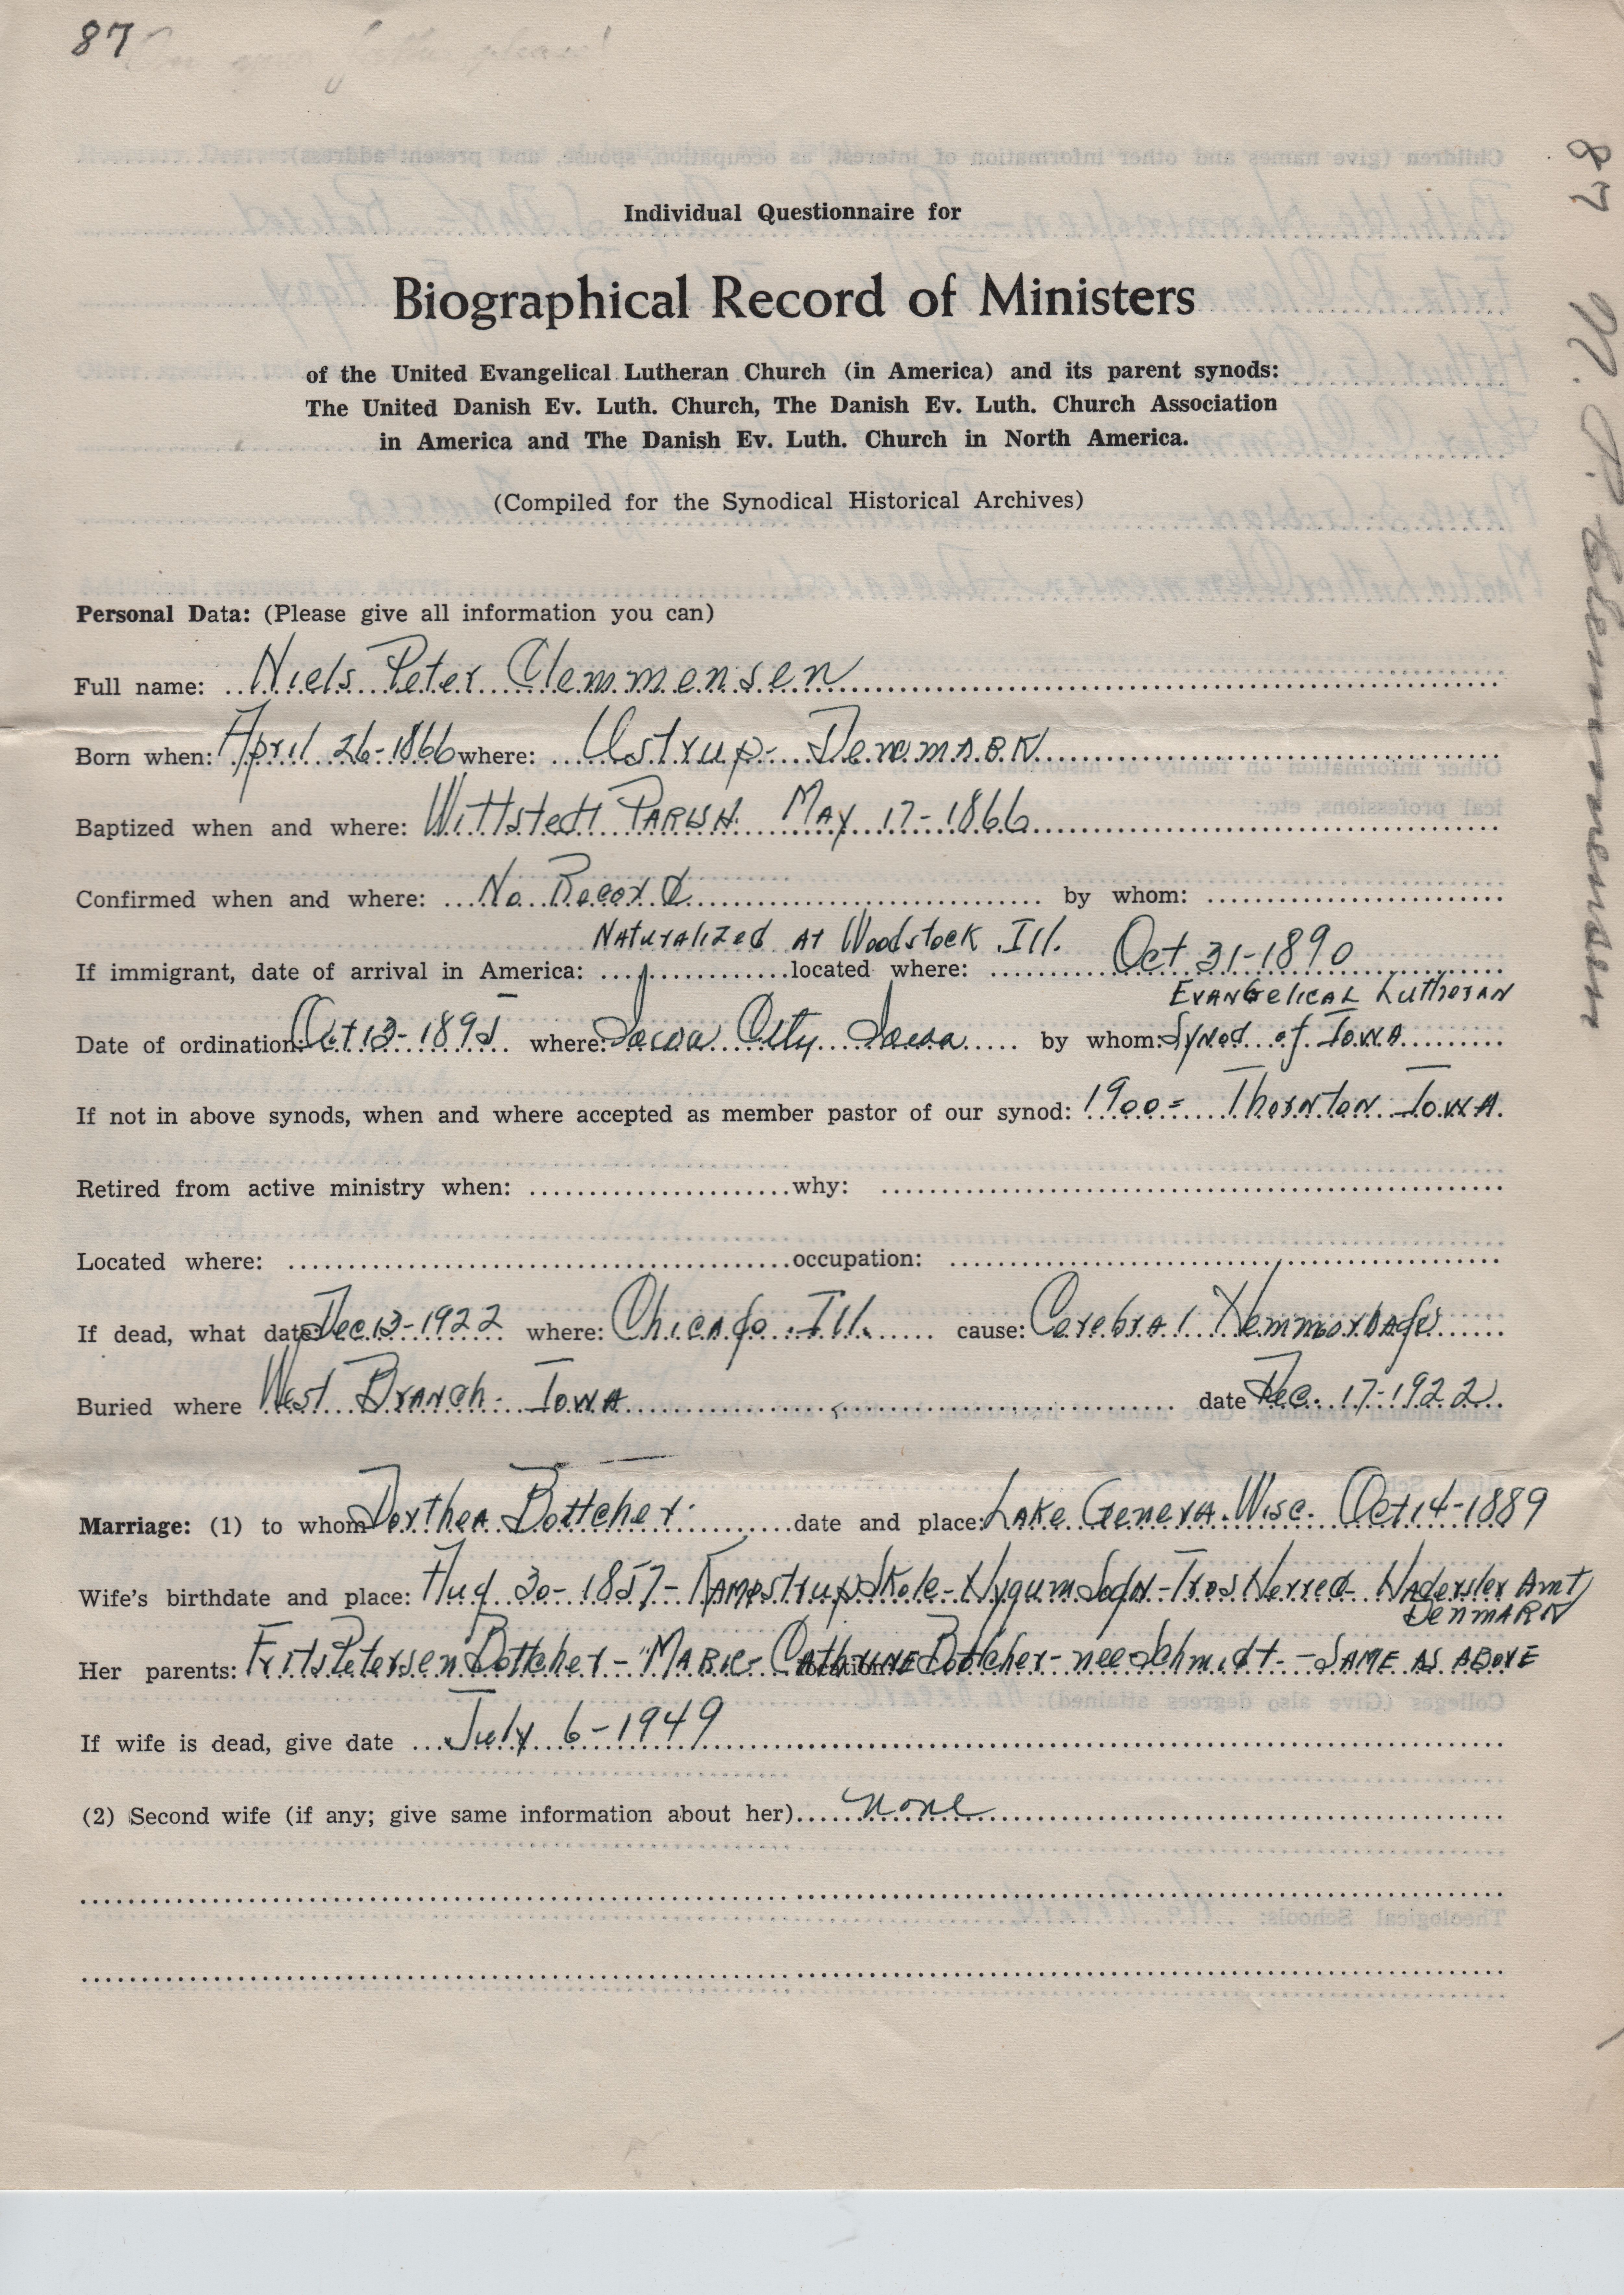 87
Individual Questionnaire for
Biographical Record of Ministers
of the United Evangelical Lutheran Church (in America) and its parent synods:
The United Danish Ev. Luth. Church, The Danish Ev. Luth. Church Association
in America and The Danish Ev. Luth. Church in North America.
(Compiled for the Synodical Historical Archives)
Personal Data: (Please give all information you can)
Full name: Niels Peter Clemmensen
Born when: April 26-1866 where: Ustrup- Denmark
Baptized when and where: Wittstedt Parish May 17-1866
Confirmed when and where: No Record by whom:
Naturalized at Woodstock Ill. Oct 31-1890
If immigrant, date of arrival in America: located where:
Evangelical Lutheran
Date of ordination: Oct 13-1895 where: Iowa City Iowa by whom: Synod of Iowa
If not in above synods, when and where accepted as member pastor of our synod: 1900= Thornton Iowa.
Retired from active ministry when: why:
Located where: occupation:
If dead, what date: Dec 13-1922 where: Chicago Ill. cause: Cerebral Hemmorhage
Buried where West Branch- Iowa date Dec. 17-1922
Marriage: (1) to whom Dorthea Bottcher date and place: Lake Geneva. Wisc. Oct 14-1889
Wife's birthdate and place: Aug 30-1857- Kampstrup Skole- Nygum Sogn- Herred- Haderslev Amt
Denmark
Her parents: Frits Petersen Bottcher - "Marie- Cathrine Bottcher- nee Schmidt- location: - Same as above
If wife is dead, give date July 6-1949
(2) Second wife (if any; give same information about her) none
87 N. P. Clemmensen